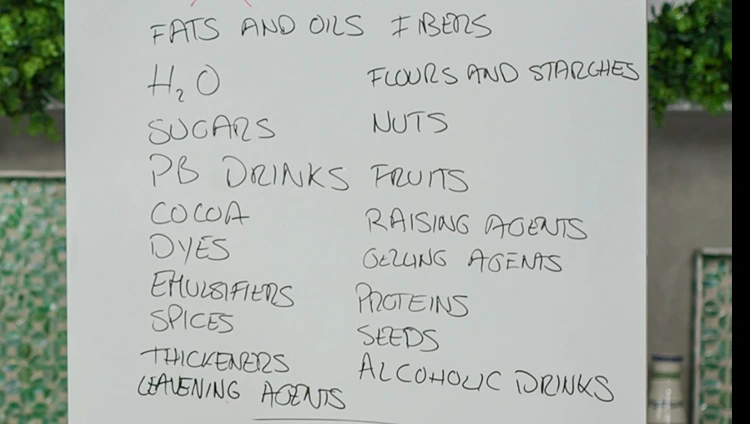 FATS AND OILS
H₂O
SUGARS
PB DRINKS
COCOA
DYES
EMULSIFIERS
SPICES
THICKENERS
LEAVENING AGENTS
FIBERS
FLOURS AND STARCHES
NUTS
FRUITS
RAISING AGENTS
GELLING AGENTS
PROTEINS
SEEDS
ALCOHOLIC DRINKS